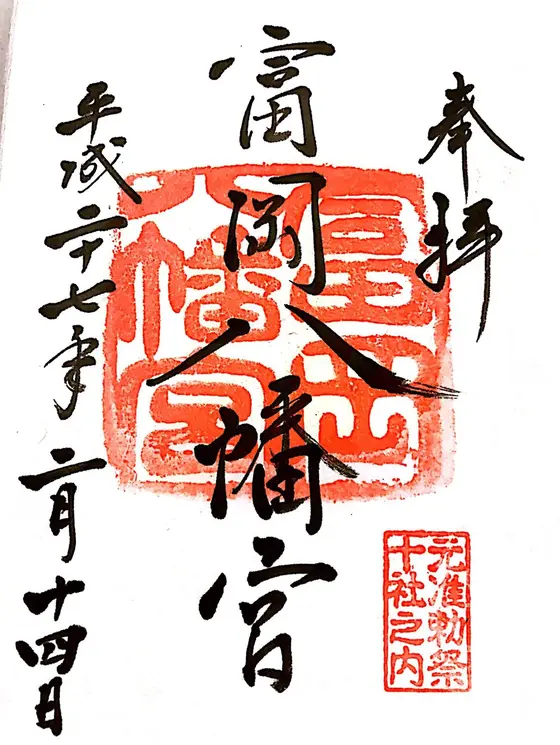 奉拝
富岡八幡宮
平成二十七年二月十四日
富岡
八幡宮
元准勅祭
十社之内